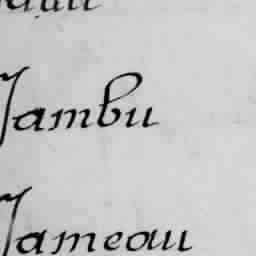 Jambu
Jameau